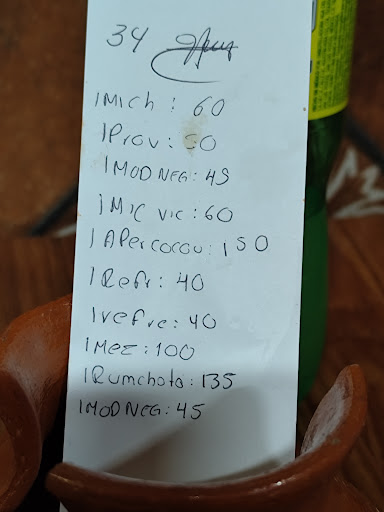 34
1 Mich : 60
1 Prov : 0
1 MOD NEG : 45
1 Mic vic : 60
1 APercocou : 150
1 Refr : 40
1 refre : 40
1 Mez : 100
1 Rumchata : 135
1 MOD NEG : 45